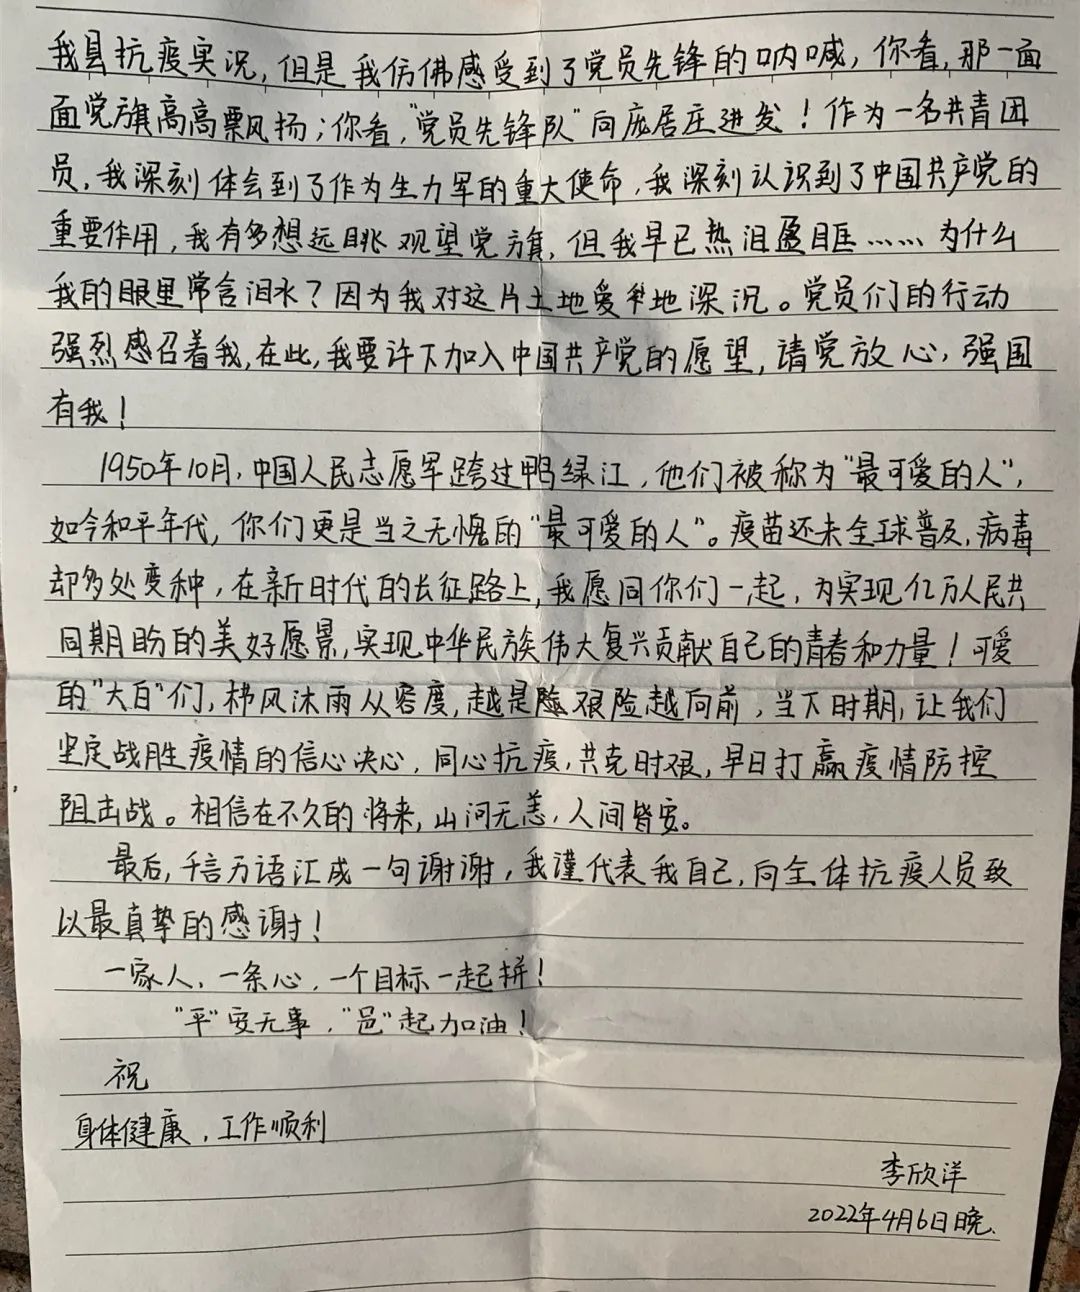 我县抗疫实况，但是我仿佛感受到了党员先锋的呐喊，你看，那一面
面党旗高高飘扬；你看，“党员先锋队”向庞居庄进发！作为一名共青团
员，我深刻体会到了作为生力军的重大使命，我深刻认识到了中国共产党的
重要作用，我有多想远眺观望党旗，但我早已热泪盈眶……为什么
我的眼里常含泪水？因为我对这片土地爱得深沉。党员们的行动
强烈感召着我，在此，我要许下加入中国共产党的愿望，请党放心，强国
有我！
1950年10月，中国人民志愿军跨过鸭绿江，他们被称为“最可爱的人”，
如今和平年代，你们更是当之无愧的“最可爱的人”。疫苗还未全球普及，病毒
却多处变种，在新时代的长征路上，我愿同你们一起，为实现亿万人民共
同期盼的美好愿景，实现中华民族伟大复兴贡献自己的青春和力量！可爱
的“大白”们，栉风沐雨从容度，越是艰险越向前，当下时期，让我们
坚定战胜疫情的信心决心，同心抗疫，共克时艰，早日打赢疫情防控
阻击战。相信在不久的将来，山河无恙，人间皆安。
最后，千言万语汇成一句谢谢，我谨代表我自己，向全体抗疫人员致
以最真挚的感谢！
一家人，一条心，一个目标一起拼！
“平”安无事，“邑”起加油！
祝
身体健康，工作顺利
李欣洋
2022年4月6日晚.